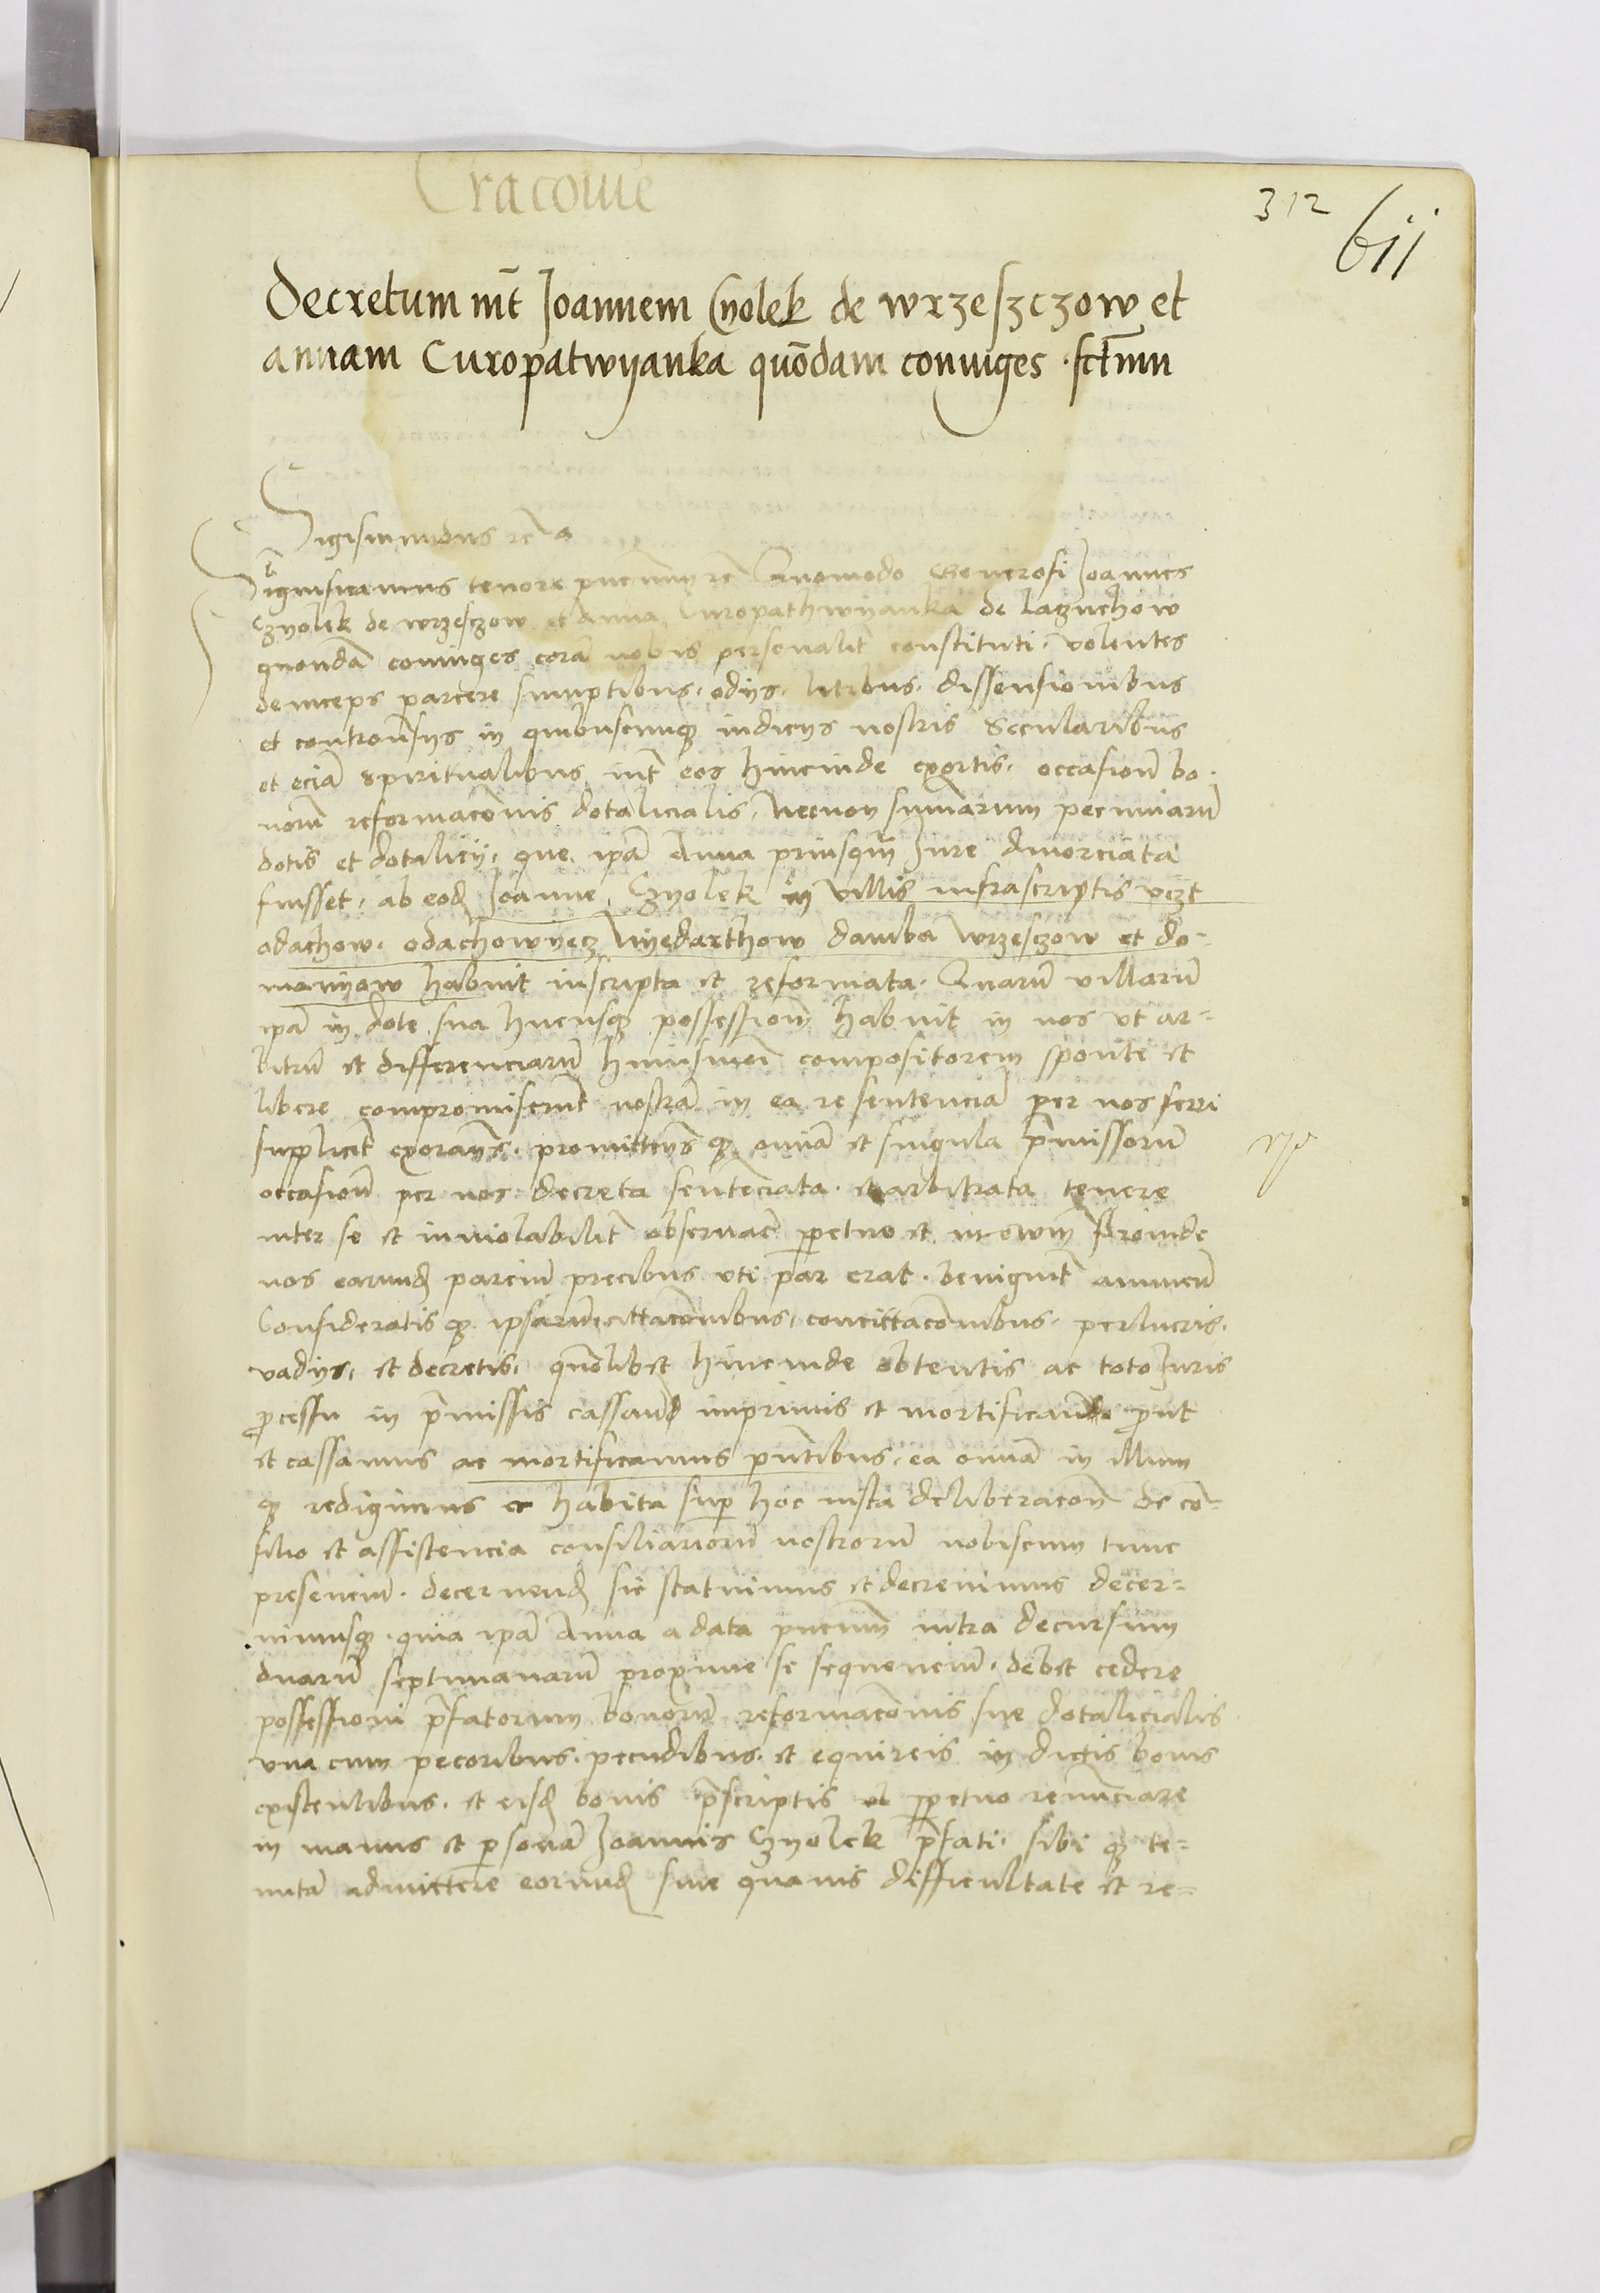 Cracovie
312
611
Decretum int Joannem Czyolek de wrzeszczow et
annam Curopatwyanka quodam coniuges fctmm
Sigismundus rc
Significamus tenore pncium rc Quomodo Generosi Joannes
Czyolek de wrzeszow et Anna Curopathwyanka de laznchow
quonda coniuges cora nobis personalit constituti volentes
deinceps parcere sumptibus odys litibus dissensionibus
et controusys in quibuscumq iudicys nostris Secularibus
et ecia spiritualibus int eos hincinde exortis occasione bo
noru reformaconis dotalicialis Necnon summarum pecuniaru
dotis et dotalicy que ipa Anna priusqm Jure diuorciata
fuisset ab eod Joanne Czyolek in villis infrascriptis vczt
odachow odachowyecz Nyedarthow damba wrzeszow et do-
manyow habuit inscripta et reformata Quaru villaru
ipa in dote sua hucusq possessione habuit in nos vt ar-
bitru et differenciaru huiusmoi compositorem sponte et
libere compromiserunt nostra in ea re sentencia per nos ferri
supplicit exorans promittens q omia et singula pmissoru
occasione per nos decreta sentenciata et arbitrata tenere
inter se et inuiolabilit obseruare ppetuo et in ewm Proinde
nos earund parciu precibus vti par erat benignit annuen
Consideratis q ipsaru citaconibus concitaconibus perlucris
vadys et decretis quolibet hincinde obtentis ac toto Juris
pcessu in pmissis cassand imprimis et mortificand put
et cassamus ac mortificamus pntibus ea omia in illum
q redigimus et habita sup hoc iusta deliberacone de co-
silio et assistencia consiliarioru nostroru nobiscum tunc
presenciu decernend sic statuimus et decreuimus decer-
nimusq quia ipa Anna a data pncium intra decursum
duaru septimanaru proxime se sequenciu debet cedere
possessioni pfatorum bonoru reformaconis sue dotalicialis
vna cum pecoribus pecudibus et equireis in dictis bonis
existentibus et eisd bonis pscriptis ppetuo renunciare
in manus et psona Joannis Czyolek pfati sibi q te-
nuta admittere eorund sine quauis difficultate et re-